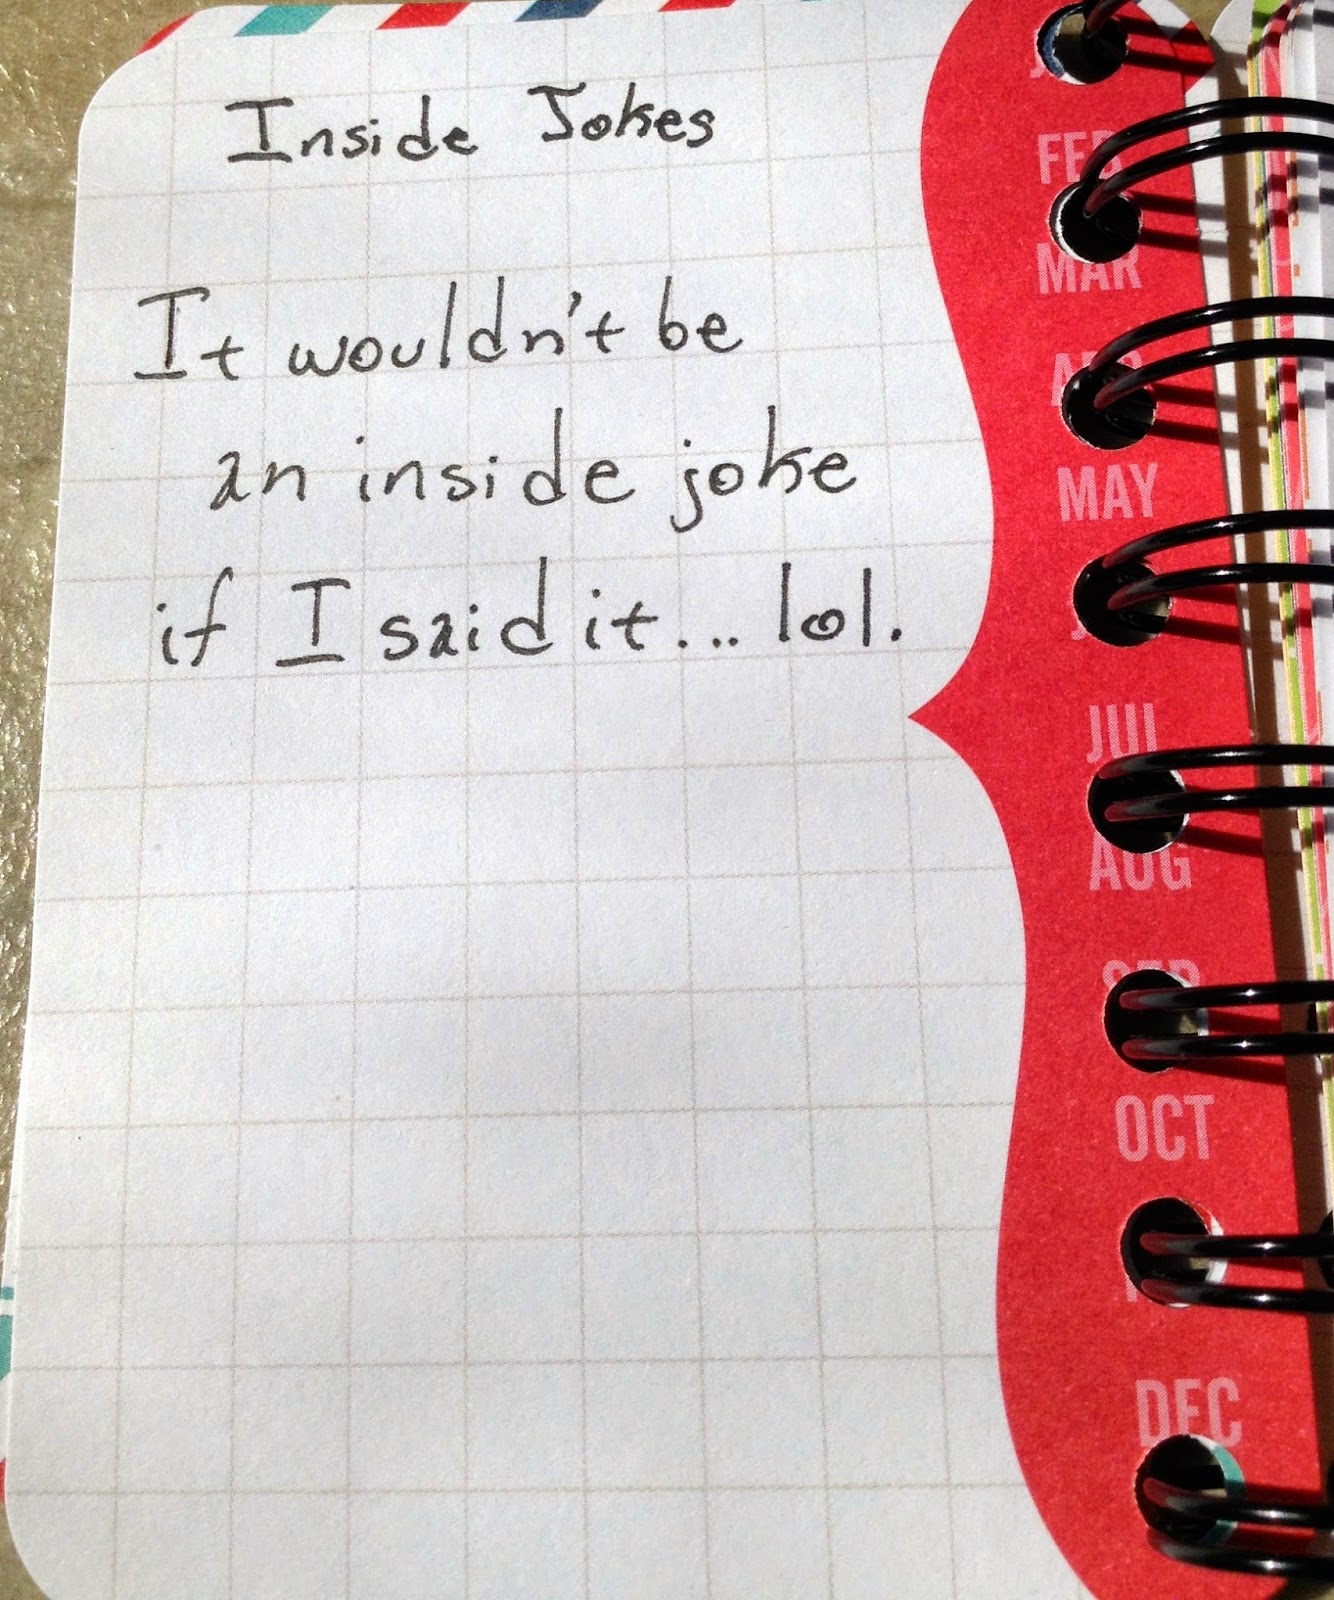 Inside Jokes
It wouldn't be
an inside joke
if I said it... lol.
FEB
MAR
MAY
JUL
AUG
SEP
OCT
DEC